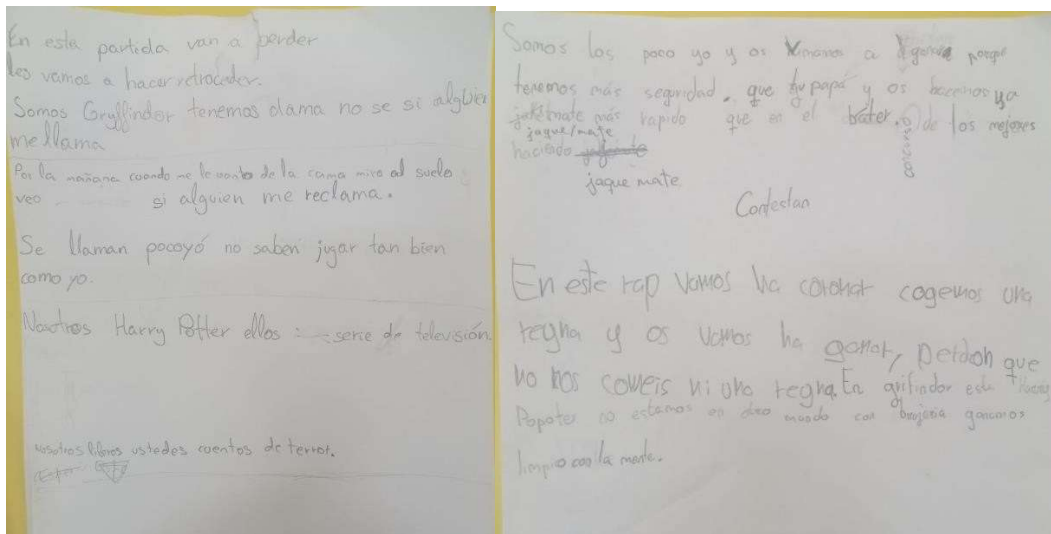 En esta partida van a perder
les vamos a hacer retroceder.
Somos Gryffindor tenemos dama no se si alguien
me llama
Por la mañana cuando me levanto de la cama miro al suelo
veo si alguien me reclama.
Se llaman pocoyó no saben jugar tan bien
como yo.
Nosotros Harry Potter ellos : serie de televisión.
nosotros libros ustedes cuentos de terror.
Somos los poco yo y os a porque
tenemos más seguridad. que tu papá y os hacemos ya
más rapido que en el báter. de los mejores
jaque/mate
haciendo
jaque mate
Contestan
En este rap vamos ha coronar cogemos una
reyna y os vamos ha ganar, perdon que
no nos comeis ni una reyna. En grifindor esta
Popoter no estamos en otro mundo con brujeria ganamos
limpio con la mente.